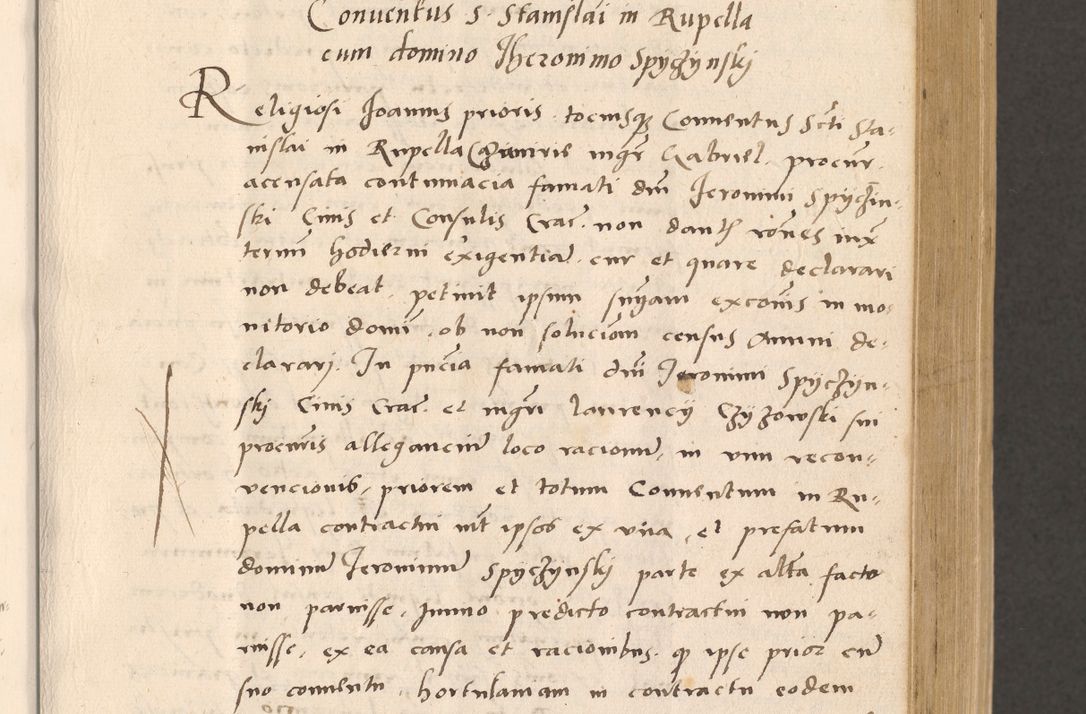 Conventus S. Stanislai in Rupella
cum domino Iheronimo Spyczynskj
Religiosi Ioannis prioris tociusq3 Conventus Scti Sta-
nislai in Rupella Cazimirie mgr Gabriel procur.
acensata contumacia famati dni Jeronimi Spyczin-
ski Civis et Consulis Crac. non dantis rones iux
termi hodierni exigentia. cur et quare declarari
non debeat. petivit ipsum suyam excois in mo-
nitorio domi. ob non solucioem census annui de-
clararj. In pncia famati dni Jeronimi Spyczyn-
skj Civis Crac. et mgri laurencij Czyzowski sui
procuris allegancium loco racionum, in vim recon-
vencionis, priorem et totum Conventum in Ru-
pella contractui int ipsos ex vna, et prefatum
dominum Jeronimum Spyczynskj parte ex altra facto
non paruisse, Immo predicto contractui non pa-
ruisse, ex ea causa et racionibus. q ipse prior cum
suo conventu, hortulaniam in contractu eodem